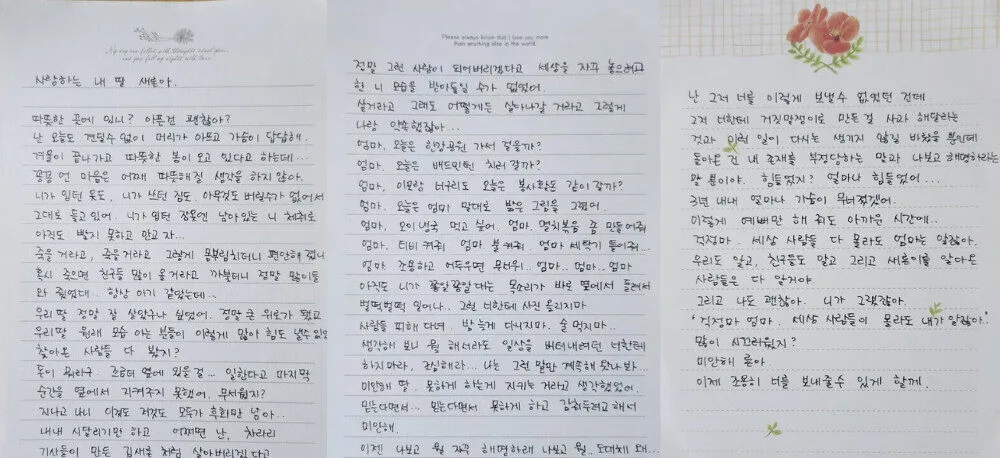 My day are filled with thoughts about you...
and you fill my nights with love.
사랑하는 내 딸 새론아.
따뜻한 곳에 있니? 아픈건 괜찮아?
난 오늘도 견딜수 없이 머리가 아프고 가슴이 답답해.
겨울이 끝나가고 따뜻한 봄이 오고 있다고 하는데...
꽁꽁 언 마음은 어째 따뜻해질 생각을 하지 않아.
니가 입던 옷도, 니가 쓰던 짐도. 아무것도 버릴수가 없어서
그대로 들고 있어. 니가 입던 잠옷엔 남아있는 니 체취로
아직도 빨지 못하고 안고 자...
죽을 거라고, 죽을거라고 그렇게 몸부림치더니 편안해 졌니
혹시 죽으면 친구들 많이 올 거라고 까불더니 정말 많이들
와 줬었대.. 항상 아기 같았는데...
우리 딸 정말 잘 살았구나 싶었어. 정말 큰 위로가 됐고
우리 딸 원래 모습 아는 분들이 이렇게 많아 힘도 낼수 있었
찾아온 사람들 다 봤지?
돈이 뭐라구.. 조금더 옆에 있을 걸... 일한다고 마지막
순간을 옆에서 지켜주지 못했어. 무서웠지?
지나고 나니 이것도 저것도 모두가 후회만 남아...
내내 시달리기만 하고 어쩌면 난, 차라리
기사들이 만든 김새론 처럼 살아버리겠다고
Please always know that I love you more
than anything else in the world.
정말 그런 사람이 되어버리겠다고 세상을 자꾸 놓으려고
한 니 모습을 받아들일 수가 없었어.
살거라고 그래도 어떻게든 살아나갈 거라고 그렇게
나랑 약속했잖아...
엄마. 오늘은 한강공원 가서 걸을까?
엄마. 오늘은 배드민턴 치러 갈까?
엄마. 이모랑 너구리도 오늘은 봉사활동 같이 갈까?
엄마. 오늘은 엄마 말대로 밝은 그림을 그렸어.
엄마. 오이냉국 먹고 싶어. 엄마. 멸치볶음 좀 만들어줘
엄마. 티비 켜줘 엄마 불 켜줘. 엄마 세탁기 돌려줘...
엄마 조용하고 어두우면 무서워.. 엄마.. 엄마.. 엄마
아직도 니가 쫑알쫑알 대는 목소리가 바로 옆에서 들려서
벌떡벌떡 일어나.. 그런 너한테 사진 올리지마
사람들 피해 다녀. 밤 늦게 다니지마. 술 먹지마..
생각해 보니 뭘 해서라도 일상을 버텨내려던 너한테
하지마라, 조심해라... 나는 그런 말만 계속해 댔나 봐...
미안해 딸. 못하게 하는게 지키는 거라고 생각했었어.
믿는다면서... 믿는다면서 못하게 하고 감춰두려고 해서
미안해.
이젠 나보고 뭘 자꾸 해명하래 나보고 뭘.. 도대체 왜...
난 그저 너를 이렇게 보낼수 없었던 건데
그저 너한테 거짓말쟁이로 만든걸 사과 해달라는
것과 이런 일이 다시는 생기지 않길 바랬을 뿐인데
돌아온 건 내 존재를 부정당하는 말과 나보고 해명하라는
말 뿐이야. 힘들었지? 얼마나 힘들었어...
3년 내내 얼마나 가슴이 무너졌겠어.
이렇게 예뻐만 해 줘도 아까운 시간에..
걱정마. 세상 사람들 다 몰라도 엄마는 알잖아.
우리도 알고, 친구들도 알고 그리고 새론이를 알아온
사람들은 다 알거야.
그리고 나도 괜찮아. 니가 그랬잖아.
'걱정마 엄마. 세상 사람들이 몰라도 내가 알잖아.'
많이 시끄러웠지?
미안해 론아.
이제 조용히 너를 보내줄수 있게 할께.